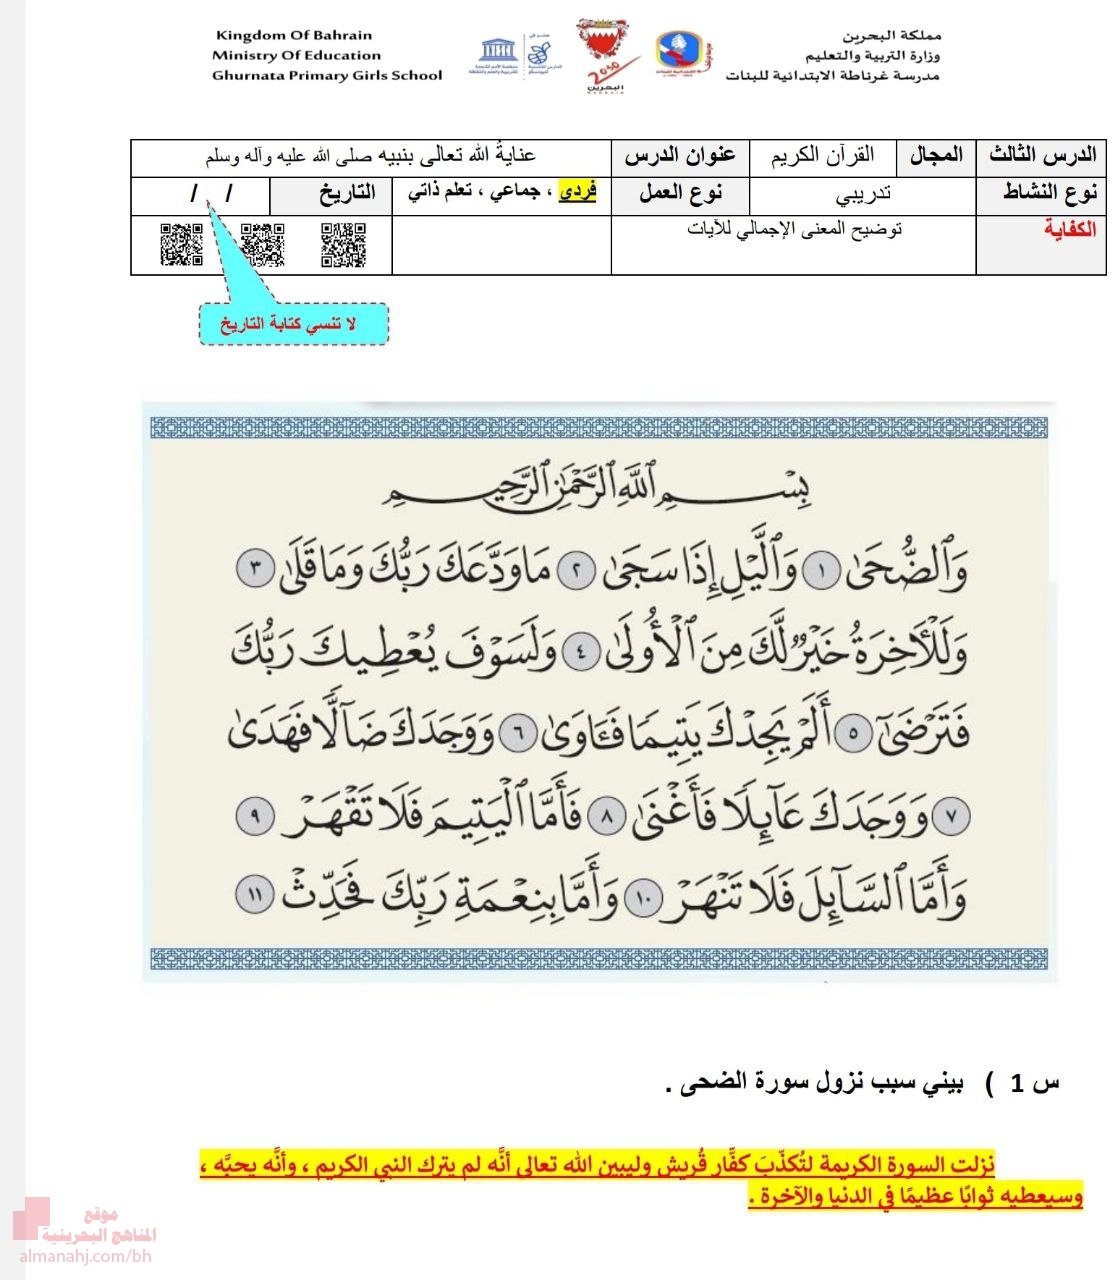 Kingdom Of Bahrain
Ministry Of Education
Ghurnata Primary Girls School
مملكة البحرين
وزارة التربية والتعليم
مدرسة غرناطة الابتدائية للبنات
2030
البحرين
BAHRAIN
الدرس الثالث المجال القرآن الكريم عنوان الدرس عنايةُ الله تعالى بنبيه صلى الله عليه وآله وسلم
نوع النشاط تدريبي نوع العمل فردي ، جماعي ، تعلم ذاتي التاريخ / /
الكفاية توضيح المعنى الإجمالي للآيات
لا تنسي كتابة التاريخ
بِسْمِ ٱللَّهِ ٱلرَّحْمَٰنِ ٱلرَّحِيمِ
وَٱلضُّحَىٰ ١ وَٱلَّيْلِ إِذَا سَجَىٰ ٢ مَا وَدَّعَكَ رَبُّكَ وَمَا قَلَىٰ ٣
وَلَلْأَخِرَةُ خَيْرٌ لَّكَ مِنَ ٱلْأُولَىٰ ٤ وَلَسَوْفَ يُعْطِيكَ رَبُّكَ
فَتَرْضَىٰٓ ٥ أَلَمْ يَجِدْكَ يَتِيمًا فَـَٔاوَىٰ ٦ وَوَجَدَكَ ضَآلًّا فَهَدَىٰ
٧ وَوَجَدَكَ عَآئِلًا فَأَغْنَىٰ ٨ فَأَمَّا ٱلْيَتِيمَ فَلَا تَقْهَرْ ٩
وَأَمَّا ٱلسَّآئِلَ فَلَا تَنْهَرْ ١٠ وَأَمَّا بِنِعْمَةِ رَبِّكَ فَحَدِّثْ ١١
س 1 ) بيني سبب نزول سورة الضحى .
نزلت السورة الكريمة لتُكذّبَ كفَّار قُريش وليبين الله تعالى أنَّه لم يترك النبي الكريم ، وأنَّه يحبَّه ،
وسيعطيه ثوابًا عظيمًا في الدنيا والآخرة .
موقع
المناهج البحرينية
almanahj.com/bh